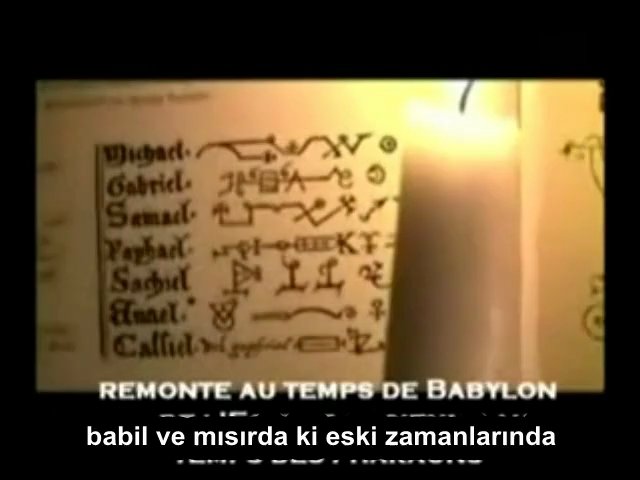 Michael.
Gabriel.
Samael.
Raphael.
Sachiel
Anael.*
Cassiel.
REMONTE AU TEMPS DE BABYLON
babil ve mısırda ki eski zamanlarında
TEMPS DES PHARAONS